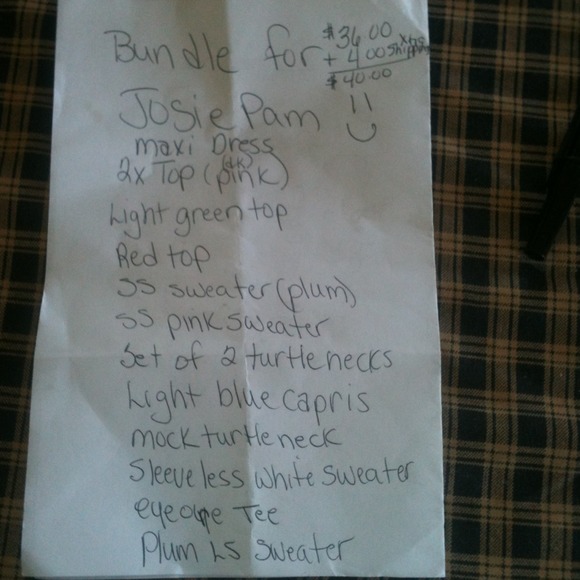 Bundle for $36.00
+ 4.00 shipping
$40.00
Josie Pam
maxi Dress
2x Top (pink)
Light green top
Red top
SS sweater (plum)
SS pink sweater
Set of 2 turtlenecks
Light blue capris
mock turtleneck
Sleeveless white sweater
Tee
Plum LS sweater